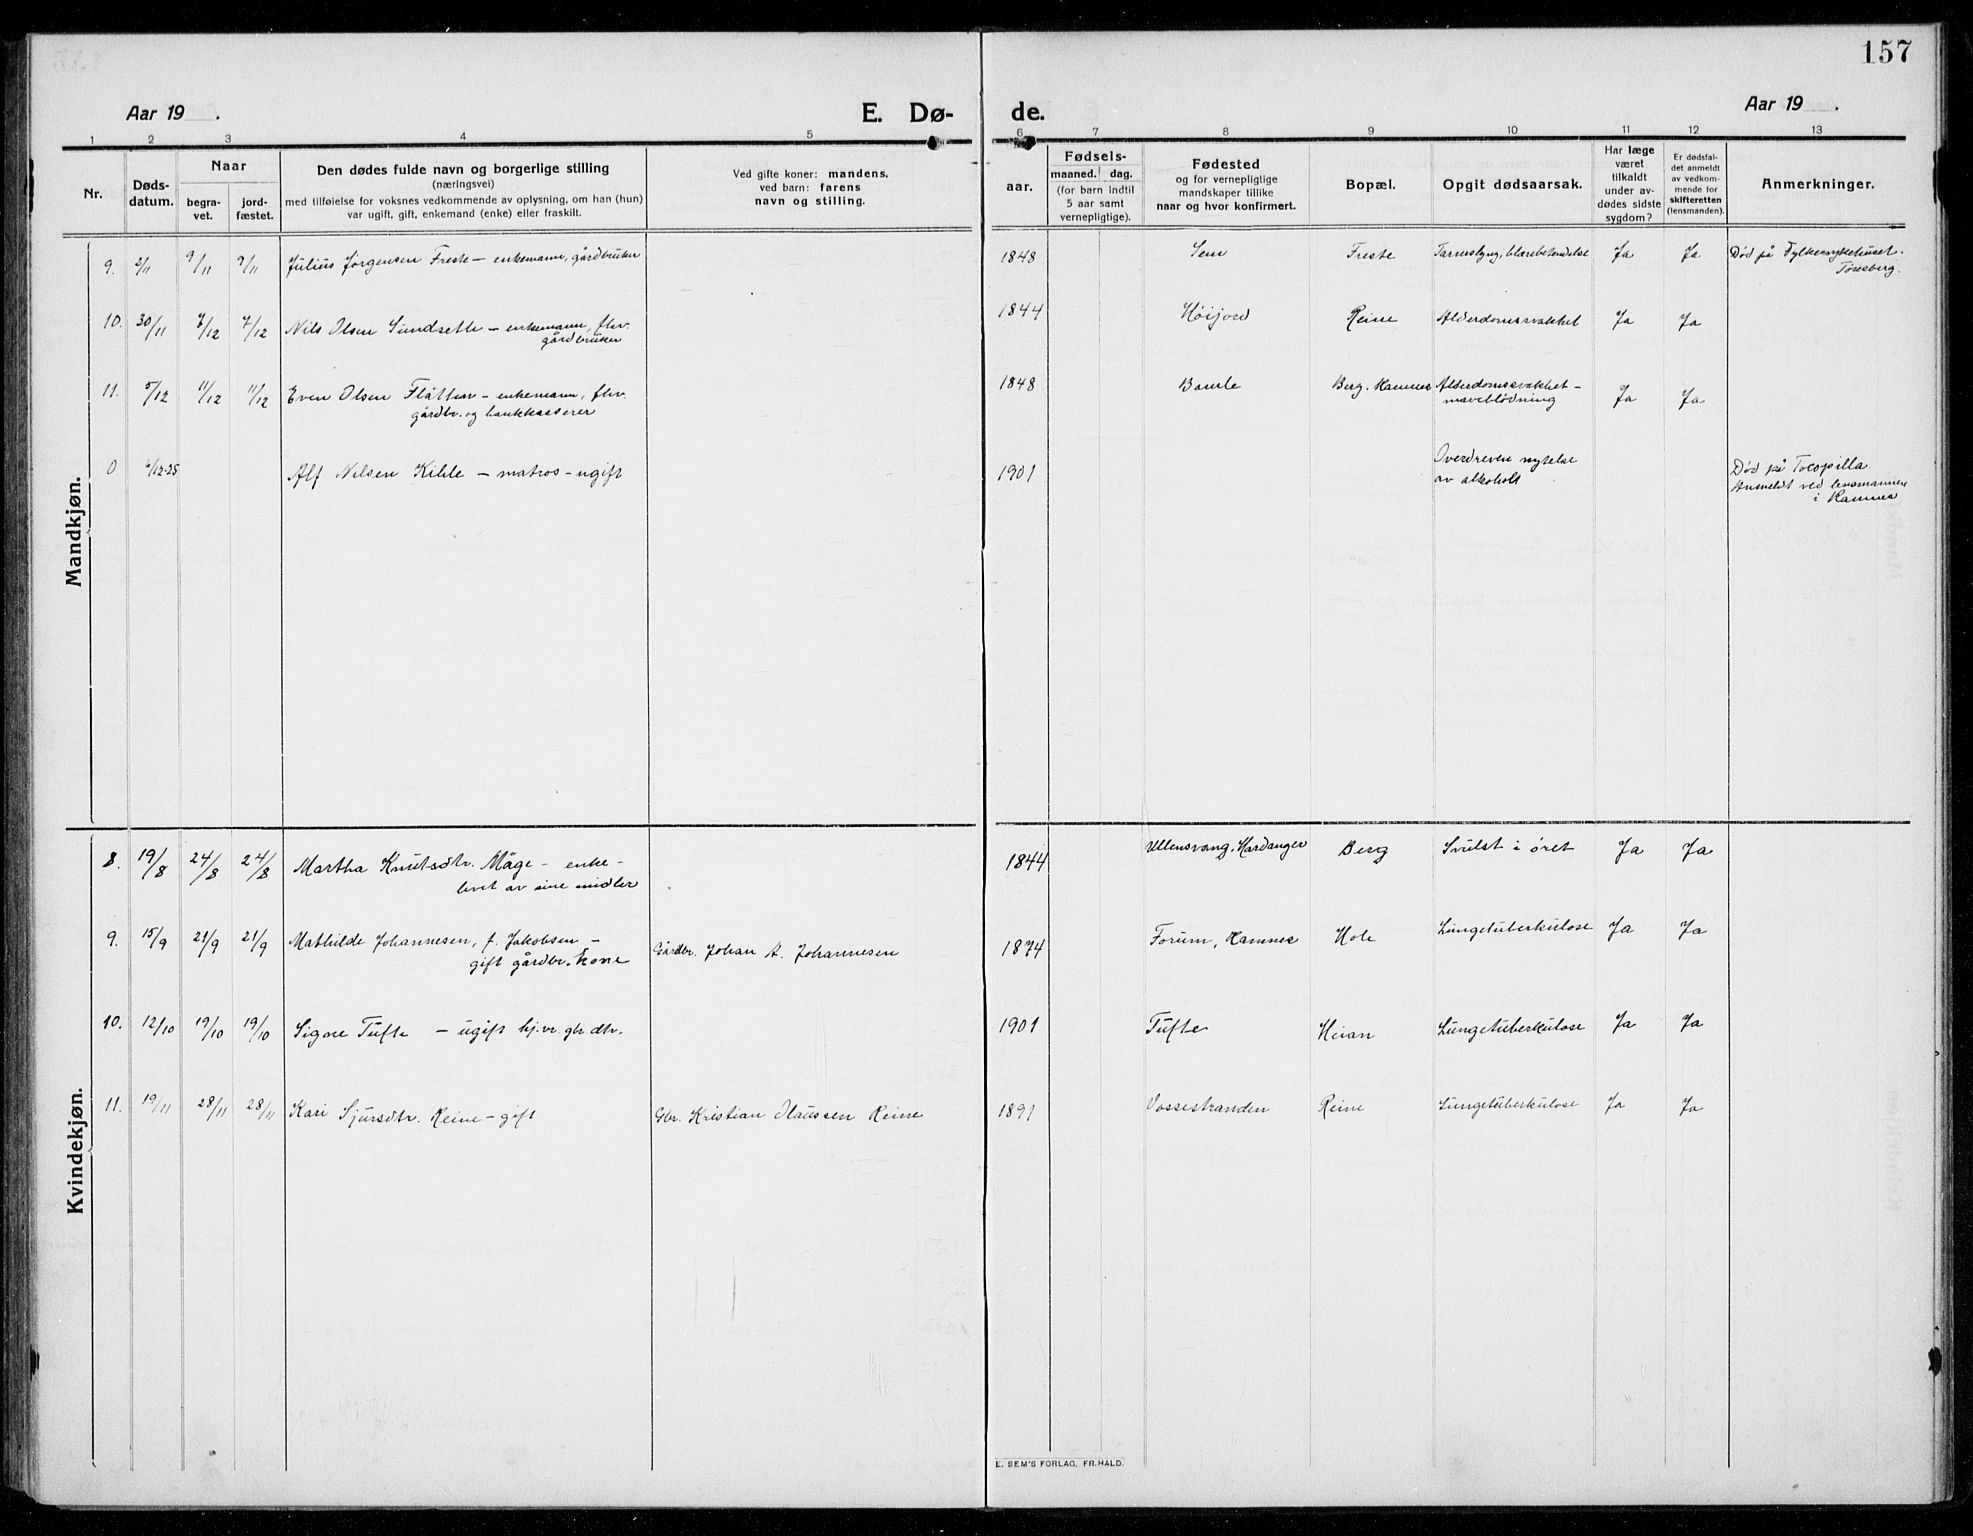 157
Aar 19 . E. Dø- de. Aar 19 .
1 2 3 4 5 6 7 8 9 10 11 12 13
Nr.
Døds-
datum.
Naar
begra-
vet.
jord-
fæstet.
Den dødes fulde navn og borgerlige stilling
(næringsvei)
med tilføielse for voksnes vedkommende av oplysning, om han (hun)
var ugift, gift, enkemand (enke) eller fraskilt.
Ved gifte koner: mandens,
ved barn: farens
navn og stilling.
aar.
Fødsels-
maaned. dag.
(for barn indtil
5 aar samt
vernepligtige).
Fødested
og for vernepligtige
mandskaper tillike
naar og hvor konfirmert.
Bopæl.
Opgit dødsaarsak.
Har læge
været
tilkaldt
under av-
dødes sidste
sygdom?
Er dødsfal-
det anmeldt
av vedkom-
mende for
skifteretten
(lensmanden).
Anmerkninger.
Mandkjøn.
9. 2/11 9/11 9/11 Julius Jørgensen Freste – enkemann, gårdbruker 1848 Sem Freste Tarmslyng, blærebetendelse Ja Ja Død på Fylkessykehuset.
Tønsberg.
10. 30/11 7/12 7/12 Nils Olsen Sundsette – enkemann, fhv. 1844 Høijord Reine Alderdomssvakhet Ja Ja
gårdbruker
11. 5/12 11/12 11/12 Even Olsen Flåtten – enkemann, fhv. 1848 Bamle Berg. Ramnes Alderdomssvakhet – Ja Ja
gårdbr. og bankkasserer maveblødning
0 6/12-25 Alf Nilsen Kihle – matros – ugift 1901 Overdreven nytelse Død på Tocopilla.
av alkohol Anmeldt ved lensmannen
i Ramnes
Kvindekjøn.
8. 19/8 24/8 24/8 Martha Knutsdtr. Måge – enke – 1844 Ullensvang, Hardanger Berg Svulst i øret Ja Ja
levet av sine midler
9. 15/9 21/9 21/9 Mathilde Johannesen, f. Jakobsen – Gårdbr. Johan A. Johannesen 1874 Forum, Ramnes Hole Lungetuberkulose Ja Ja
gift gårdbr. kone
10. 12/10 19/10 19/10 Signe Tufte – ugift hj.vr gbr dtr. 1901 Tufte Heian Lungetuberkulose Ja Ja
11. 19/11 28/11 28/11 Kari Sjursdtr. Reine – gift Gbr. Kristian Olaussen Reine 1891 Vossestranden Reine Lungetuberkulose Ja Ja
E. SEM'S FORLAG, FR.HALD.